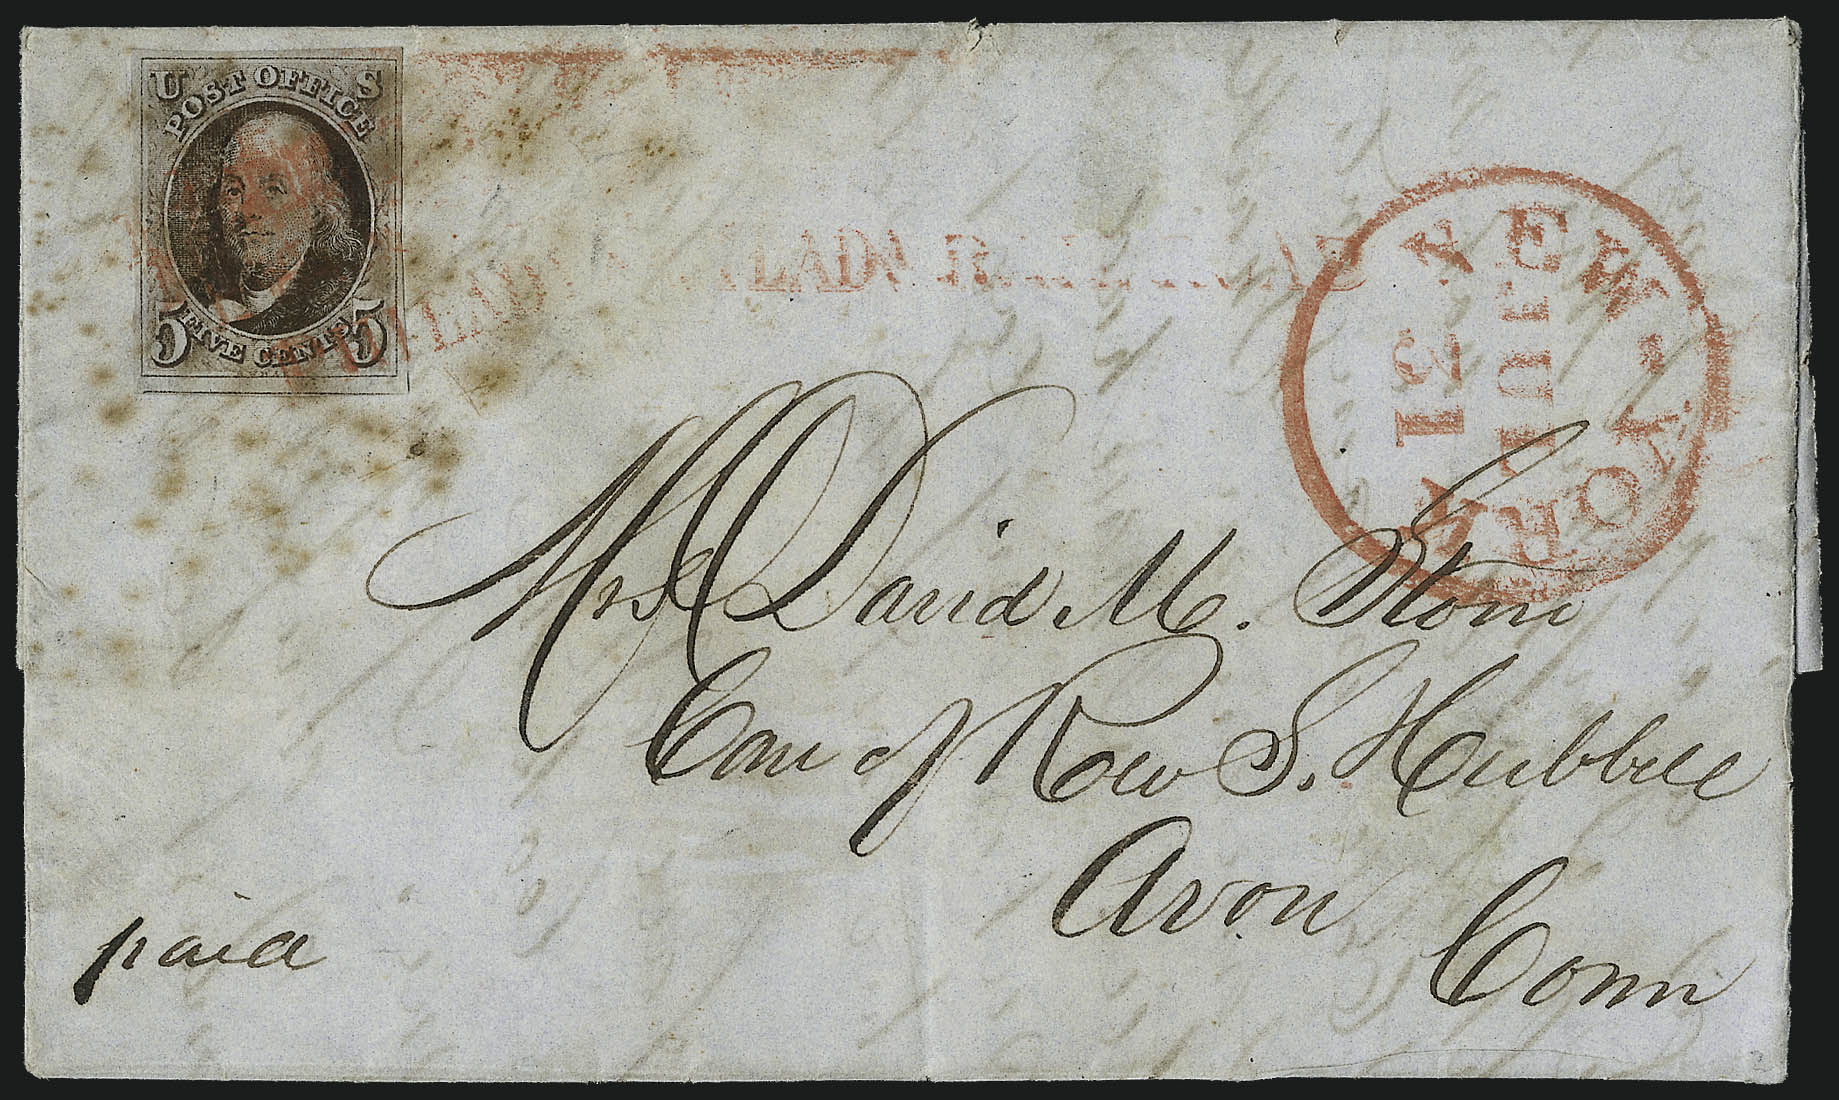 U S
POST OFFICE
5 FIVE CENTS 5
PHILADA RAILROAD
NEW-YORK
12
JUL
Mrs David M. Stone
Care of Rev S. Hubbell
Avon
Conn
paid